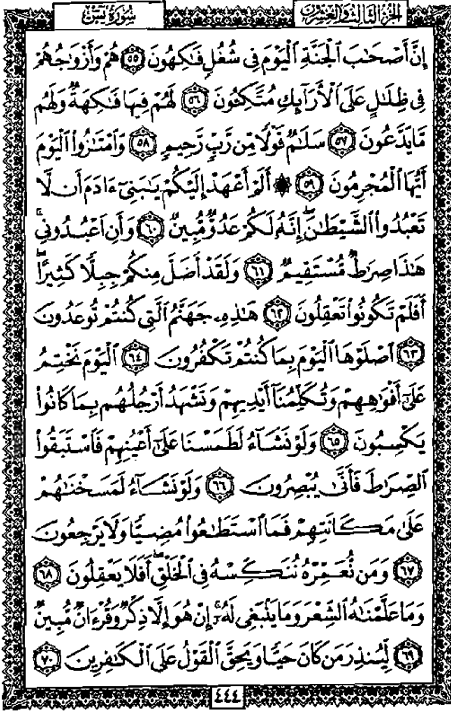 الجزء الثالث والعشرون سورة يس
إِنَّ أَصْحَٰبَ ٱلْجَنَّةِ ٱلْيَوْمَ فِى شُغُلٍ فَٰكِهُونَ ٥٥ هُمْ وَأَزْوَٰجُهُمْ
فِى ظِلَٰلٍ عَلَى ٱلْأَرَآئِكِ مُتَّكِـُٔونَ ٥٦ لَهُمْ فِيهَا فَٰكِهَةٌ وَلَهُم
مَّا يَدَّعُونَ ٥٧ سَلَٰمٌ قَوْلًا مِّن رَّبٍّ رَّحِيمٍ ٥٨ وَٱمْتَٰزُوا۟ ٱلْيَوْمَ
أَيُّهَا ٱلْمُجْرِمُونَ ٥٩ ۞ أَلَمْ أَعْهَدْ إِلَيْكُمْ يَٰبَنِىٓ ءَادَمَ أَن لَّا
تَعْبُدُوا۟ ٱلشَّيْطَٰنَ ۖ إِنَّهُۥ لَكُمْ عَدُوٌّ مُّبِينٌ ٦٠ وَأَنِ ٱعْبُدُونِى ۚ
هَٰذَا صِرَٰطٌ مُّسْتَقِيمٌ ٦١ وَلَقَدْ أَضَلَّ مِنكُمْ جِبِلًّا كَثِيرًا ۖ
أَفَلَمْ تَكُونُوا۟ تَعْقِلُونَ ٦٢ هَٰذِهِۦ جَهَنَّمُ ٱلَّتِى كُنتُمْ تُوعَدُونَ
٦٣ ٱصْلَوْهَا ٱلْيَوْمَ بِمَا كُنتُمْ تَكْفُرُونَ ٦٤ ٱلْيَوْمَ نَخْتِمُ
عَلَىٰٓ أَفْوَٰهِهِمْ وَتُكَلِّمُنَآ أَيْدِيهِمْ وَتَشْهَدُ أَرْجُلُهُم بِمَا كَانُوا۟
يَكْسِبُونَ ٦٥ وَلَوْ نَشَآءُ لَطَمَسْنَا عَلَىٰٓ أَعْيُنِهِمْ فَٱسْتَبَقُوا۟
ٱلصِّرَٰطَ فَأَنَّىٰ يُبْصِرُونَ ٦٦ وَلَوْ نَشَآءُ لَمَسَخْنَٰهُمْ
عَلَىٰ مَكَانَتِهِمْ فَمَا ٱسْتَطَٰعُوا۟ مُضِيًّا وَلَا يَرْجِعُونَ
٦٧ وَمَن نُّعَمِّرْهُ نُنَكِّسْهُ فِى ٱلْخَلْقِ ۖ أَفَلَا يَعْقِلُونَ ٦٨
وَمَا عَلَّمْنَٰهُ ٱلشِّعْرَ وَمَا يَنۢبَغِى لَهُۥٓ ۚ إِنْ هُوَ إِلَّا ذِكْرٌ وَقُرْءَانٌ مُّبِينٌ
٦٩ لِّيُنذِرَ مَن كَانَ حَيًّا وَيَحِقَّ ٱلْقَوْلُ عَلَى ٱلْكَٰفِرِينَ ٧٠
٤٤٤